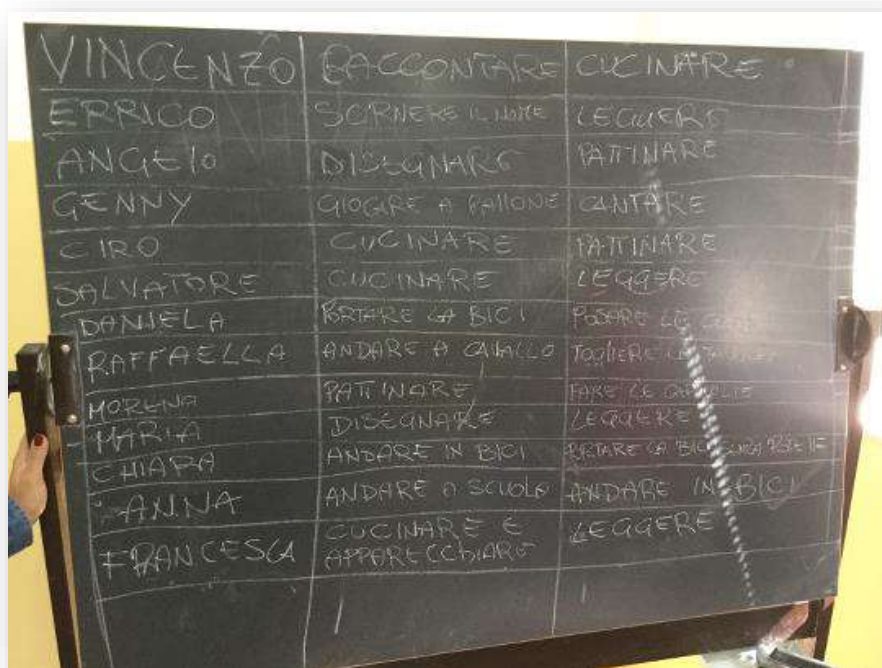 VINCENZO RACCONTARE CUCINARE
ERRICO SCRIVERE IL NOME LEGGERE
ANGElO DISEGNARE PATTINARE
GENNY GIOCARE A PAllONE CANTARE
CIRO CUCINARE PATTINARE
SALVATORE CUCINARE LEGGERE
DANIELA PORTARE LA BICI POSARE LE
RAFFAELLA ANDARE A CAVALLO TOGLIERE
MORENA PATTINARE FARE LE
MARIA DISEGNARE LEGGERE
CHIARA ANDARE IN BICI PORTARE LA BICI SENZA
ANNA ANDARE A SCUOLA ANDARE IN BICI
FRANCESCA CUCINARE E LEGGERE
APPARECCHIARE